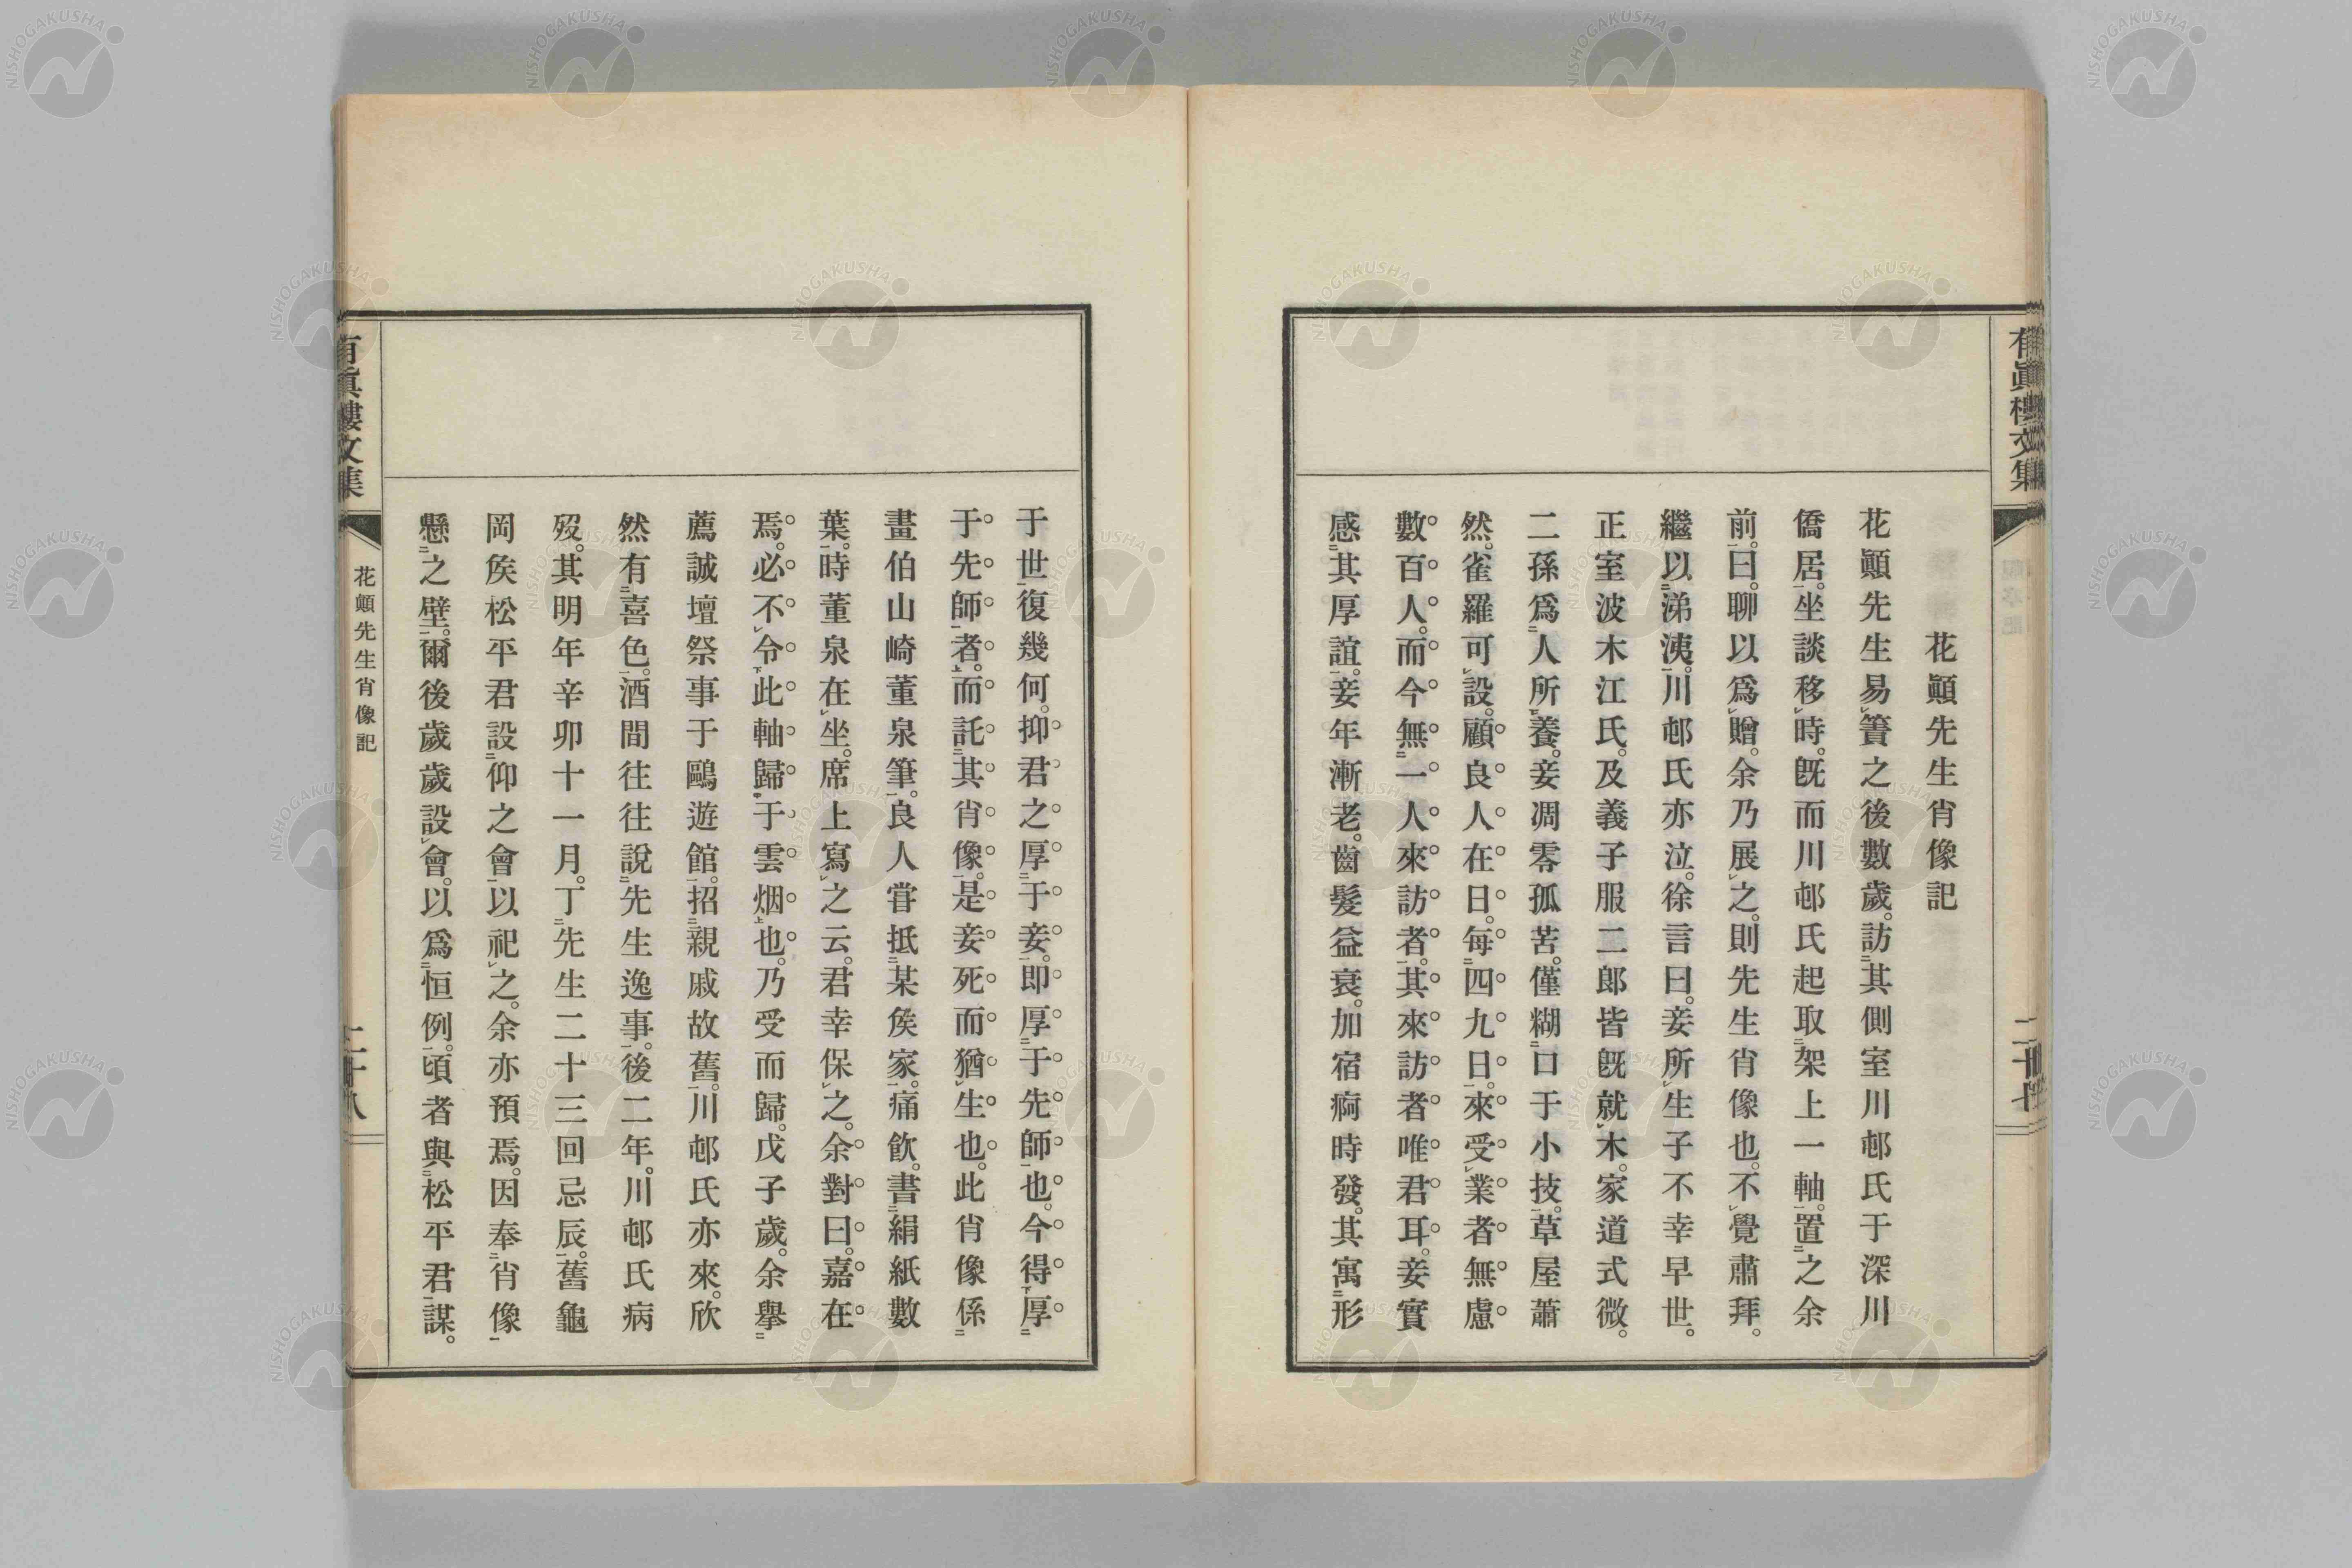 有眞樓文集
花顚先生肖像記
花顚先生易簀之後數歲。訪其側室川邨氏于深川
僑居。坐談移時。旣而川邨氏起取架上一軸。置之余
前。曰。聊以爲贈。余乃展之。則先生肖像也。不覺肅拜。
繼以涕洟。川邨氏亦泣。徐言曰。妾所生子不幸早世。
正室波木江氏。及義子服二郎皆旣就木。家道式微。
二孫爲人所養。妾凋零孤苦。僅糊口于小技。草屋蕭
然。雀羅可設。顧良人在日。每四九日。來受業者無慮
數百人。而今無一人來訪者。其來訪者唯君耳。妾實
感其厚誼。妾年漸老。齒髮益衰。加宿痾時發。其寓形
于世復幾何。抑君之厚于妾。卽厚于先師也。今得厚
于先師者。而託其肖像。是妾死而猶生也。此肖像係
畫伯山崎董泉筆。良人嘗抵某侯家。痛飮。書絹紙數
葉。時董泉在坐。席上寫之云。君幸保之。余對曰。嘉在
焉。必不令此軸歸于雲烟也。乃受而歸。戊子歲。余擧
薦誠壇祭事于鷗遊館。招親戚故舊。川邨氏亦來。欣
然有喜色。酒間往往說先生逸事。後二年。川邨氏病
歿。其明年辛卯十一月。丁先生二十三回忌辰。舊龜
岡侯松平君設仰之會以祀之。余亦預焉。因奉肖像
懸之壁。爾後歲歲設會。以爲恒例。頃者與松平君謀。
有眞樓文集
花顚先生肖像記
二十八